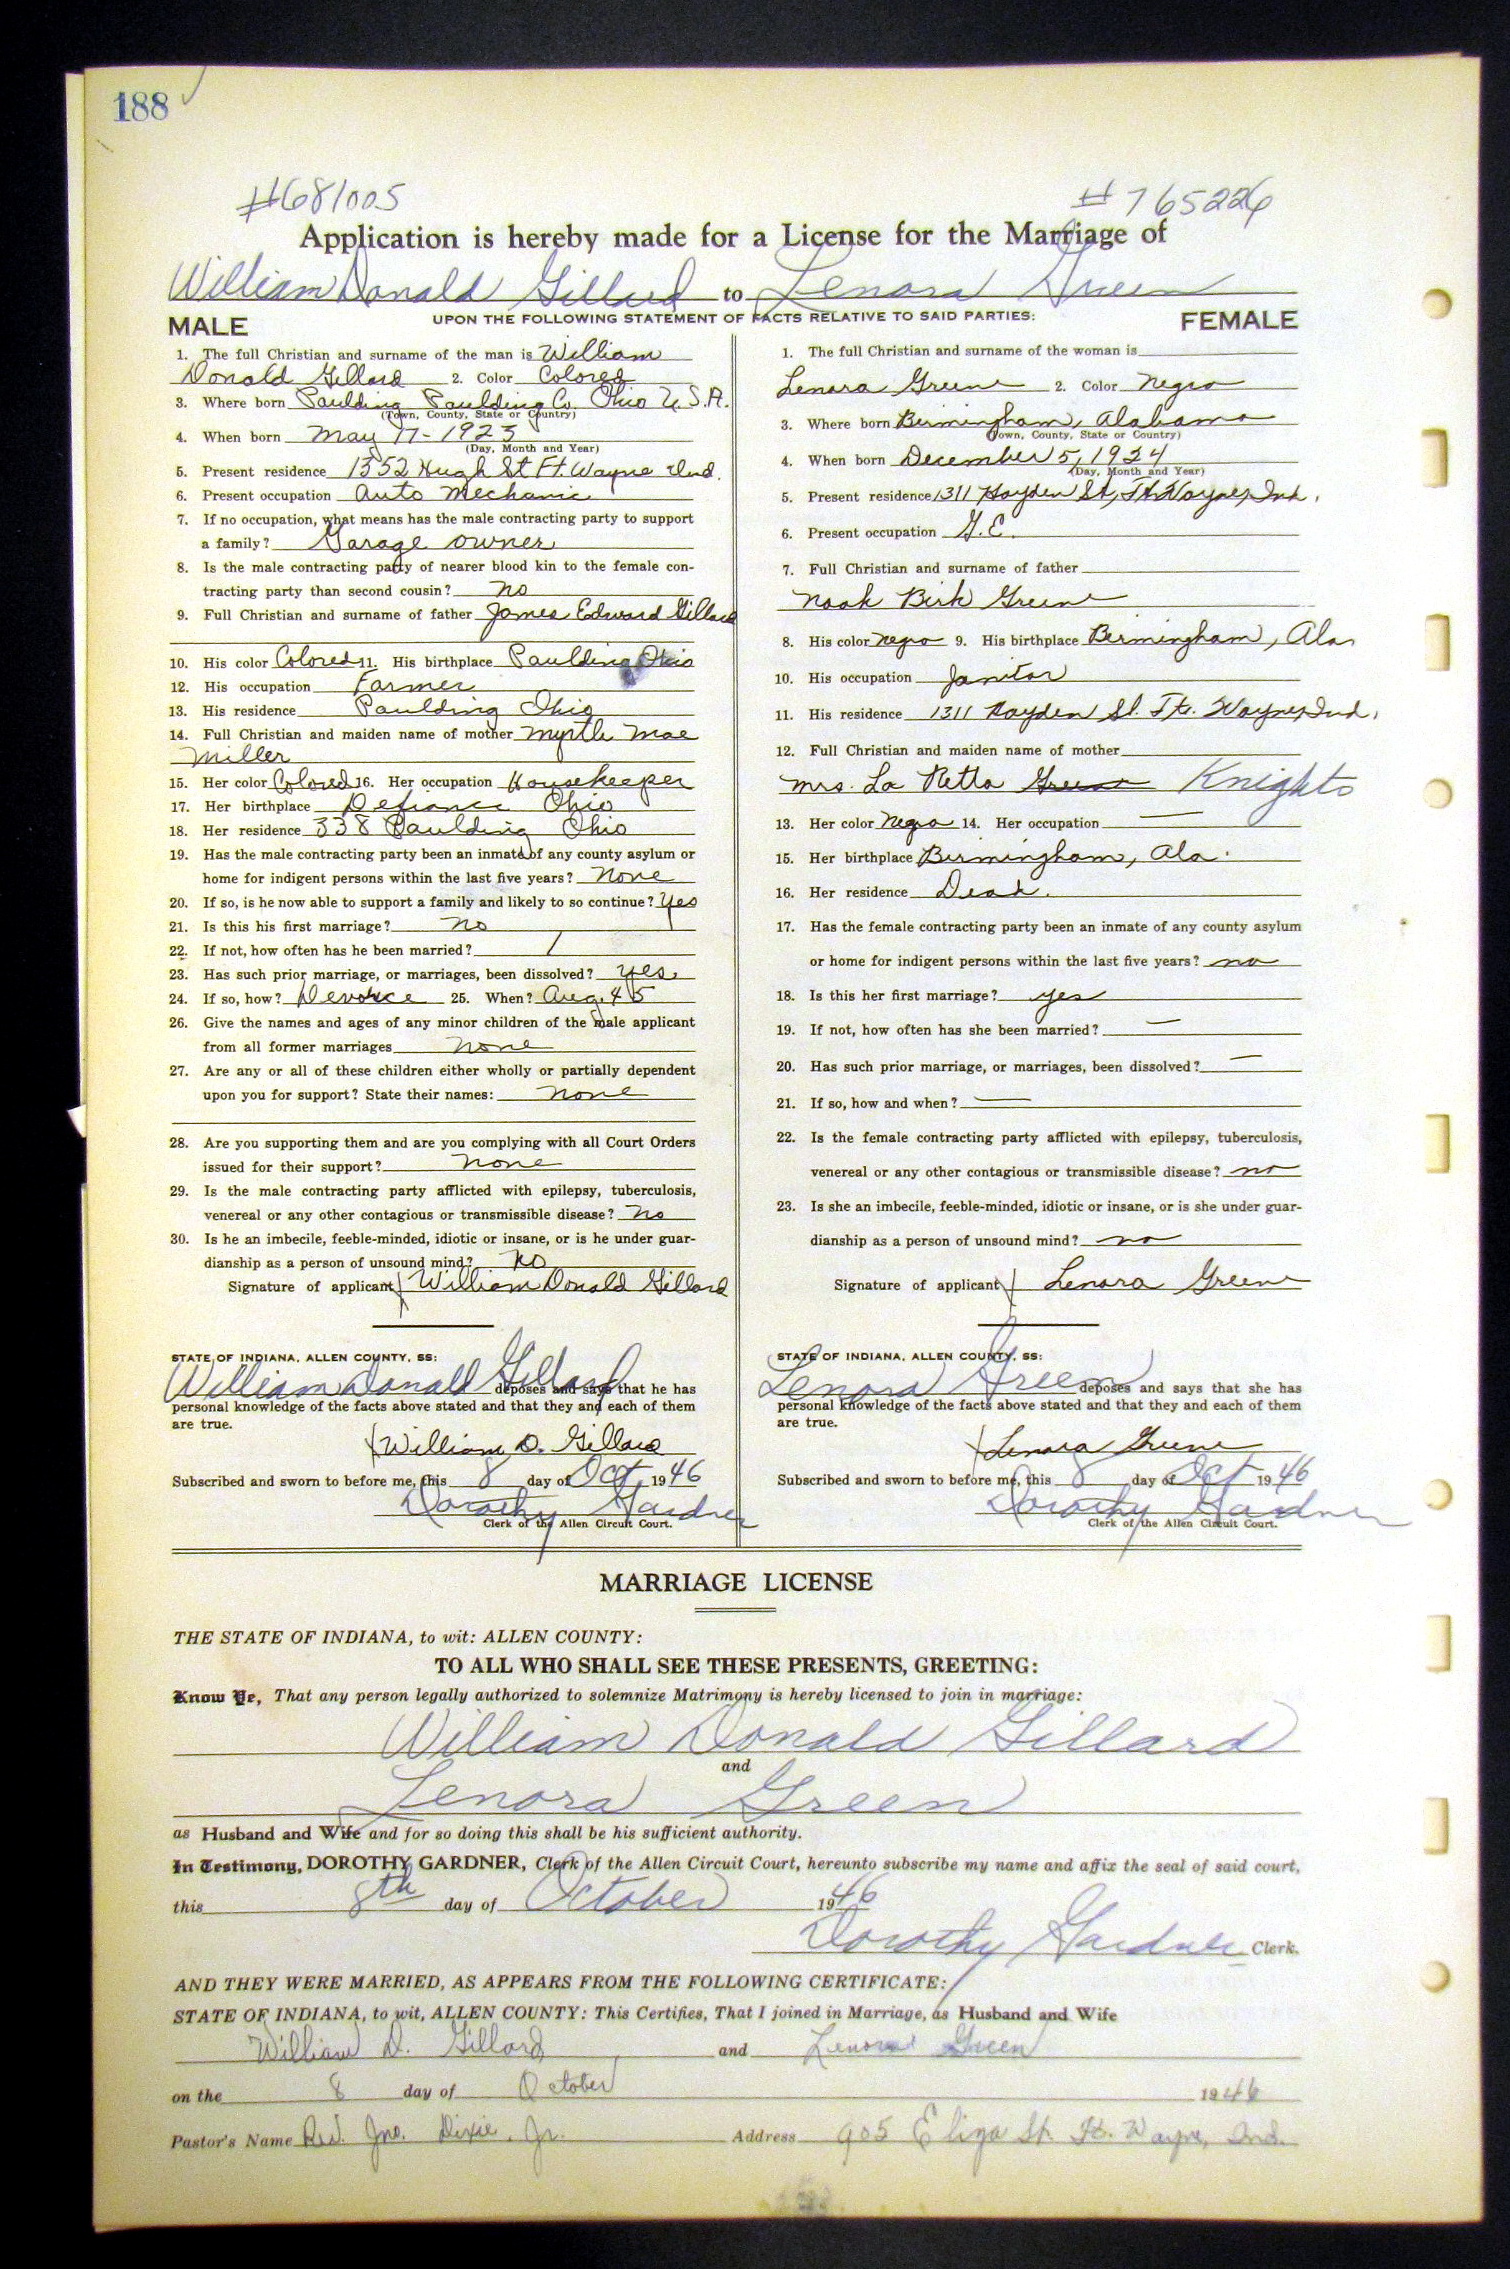 188
#681005 #765226
Application is hereby made for a License for the Marriage of
William Donald Gillard to Lenora Green
UPON THE FOLLOWING STATEMENT OF FACTS RELATIVE TO SAID PARTIES:
MALE
1. The full Christian and surname of the man is William
Donald Gillard 2. Color Colored
3. Where born Paulding Paulding Co. Ohio U.S.A.
(Town, County, State or Country)
4. When born May 17-1923
(Day, Month and Year)
5. Present residence 1352 Hugh St Ft. Wayne Ind.
6. Present occupation Auto Mechanic
7. If no occupation, what means has the male contracting party to support
a family? Garage owner
8. Is the male contracting party of nearer blood kin to the female con-
tracting party than second cousin? no
9. Full Christian and surname of father James Edward Gillard
10. His color Colored 11. His birthplace Paulding Ohio
12. His occupation Farmer
13. His residence Paulding Ohio
14. Full Christian and maiden name of mother Myrtle Mae
Miller
15. Her color Colored 16. Her occupation Housekeeper
17. Her birthplace Defiance Ohio
18. Her residence 338 Paulding Ohio
19. Has the male contracting party been an inmate of any county asylum or
home for indigent persons within the last five years? None
20. If so, is he now able to support a family and likely to so continue? Yes
21. Is this his first marriage? no
22. If not, how often has he been married? 1
23. Has such prior marriage, or marriages, been dissolved? yes.
24. If so, how? Devorce 25. When? Aug. 45
26. Give the names and ages of any minor children of the male applicant
from all former marriages none
27. Are any or all of these children either wholly or partially dependent
upon you for support? State their names: none
28. Are you supporting them and are you complying with all Court Orders
issued for their support? none
29. Is the male contracting party afflicted with epilepsy, tuberculosis,
venereal or any other contagious or transmissible disease? No
30. Is he an imbecile, feeble-minded, idiotic or insane, or is he under guar-
dianship as a person of unsound mind? No
Signature of applicant William Donald Gillard
STATE OF INDIANA, ALLEN COUNTY, SS:
William Donald Gillard deposes and says that he has
personal knowledge of the facts above stated and that they and each of them
are true.
William D. Gillard
Subscribed and sworn to before me, this 8 day of Oct 1946
Dorothy Gardner
Clerk of the Allen Circuit Court.
FEMALE
1. The full Christian and surname of the woman is
Lenora Greene 2. Color Negro
3. Where born Birmingham, Alabama
(Town, County, State or Country)
4. When born December 5, 1924
(Day, Month and Year)
5. Present residence 1311 Hayden St, Ft. Wayne, Ind.
6. Present occupation G.E.
7. Full Christian and surname of father
Noah Birk Greene
8. His color negro 9. His birthplace Birmingham, Ala
10. His occupation Janitor
11. His residence 1311 Hayden St. Ft. Wayne, Ind.
12. Full Christian and maiden name of mother
Mrs. La Retta Greene Knights
13. Her color Negro 14. Her occupation —
15. Her birthplace Birmingham, Ala.
16. Her residence Dead.
17. Has the female contracting party been an inmate of any county asylum
or home for indigent persons within the last five years? no
18. Is this her first marriage? yes
19. If not, how often has she been married? —
20. Has such prior marriage, or marriages, been dissolved? —
21. If so, how and when? —
22. Is the female contracting party afflicted with epilepsy, tuberculosis,
venereal or any other contagious or transmissible disease? no
23. Is she an imbecile, feeble-minded, idiotic or insane, or is she under guar-
dianship as a person of unsound mind? no
Signature of applicant Lenora Greene
STATE OF INDIANA, ALLEN COUNTY, SS:
Lenora Green deposes and says that she has
personal knowledge of the facts above stated and that they and each of them
are true.
Lenora Greene
Subscribed and sworn to before me, this 8 day of Oct 1946
Dorothy Gardner
Clerk of the Allen Circuit Court.
MARRIAGE LICENSE
THE STATE OF INDIANA, to wit: ALLEN COUNTY:
TO ALL WHO SHALL SEE THESE PRESENTS, GREETING:
Know Ye, That any person legally authorized to solemnize Matrimony is hereby licensed to join in marriage:
William Donald Gillard
and
Lenora Green
as Husband and Wife and for so doing this shall be his sufficient authority.
In Testimony, DOROTHY GARDNER, Clerk of the Allen Circuit Court, hereunto subscribe my name and affix the seal of said court,
this 8th day of October 1946
Dorothy Gardner Clerk.
AND THEY WERE MARRIED, AS APPEARS FROM THE FOLLOWING CERTIFICATE:
STATE OF INDIANA, to wit, ALLEN COUNTY: This Certifies, That I joined in Marriage, as Husband and Wife
William D. Gillard and Lenora Green
on the 8 day of October 1946
Pastor's Name Rev. Jno. Dixie, Jr. Address 905 Eliza St. Ft. Wayne, Ind.